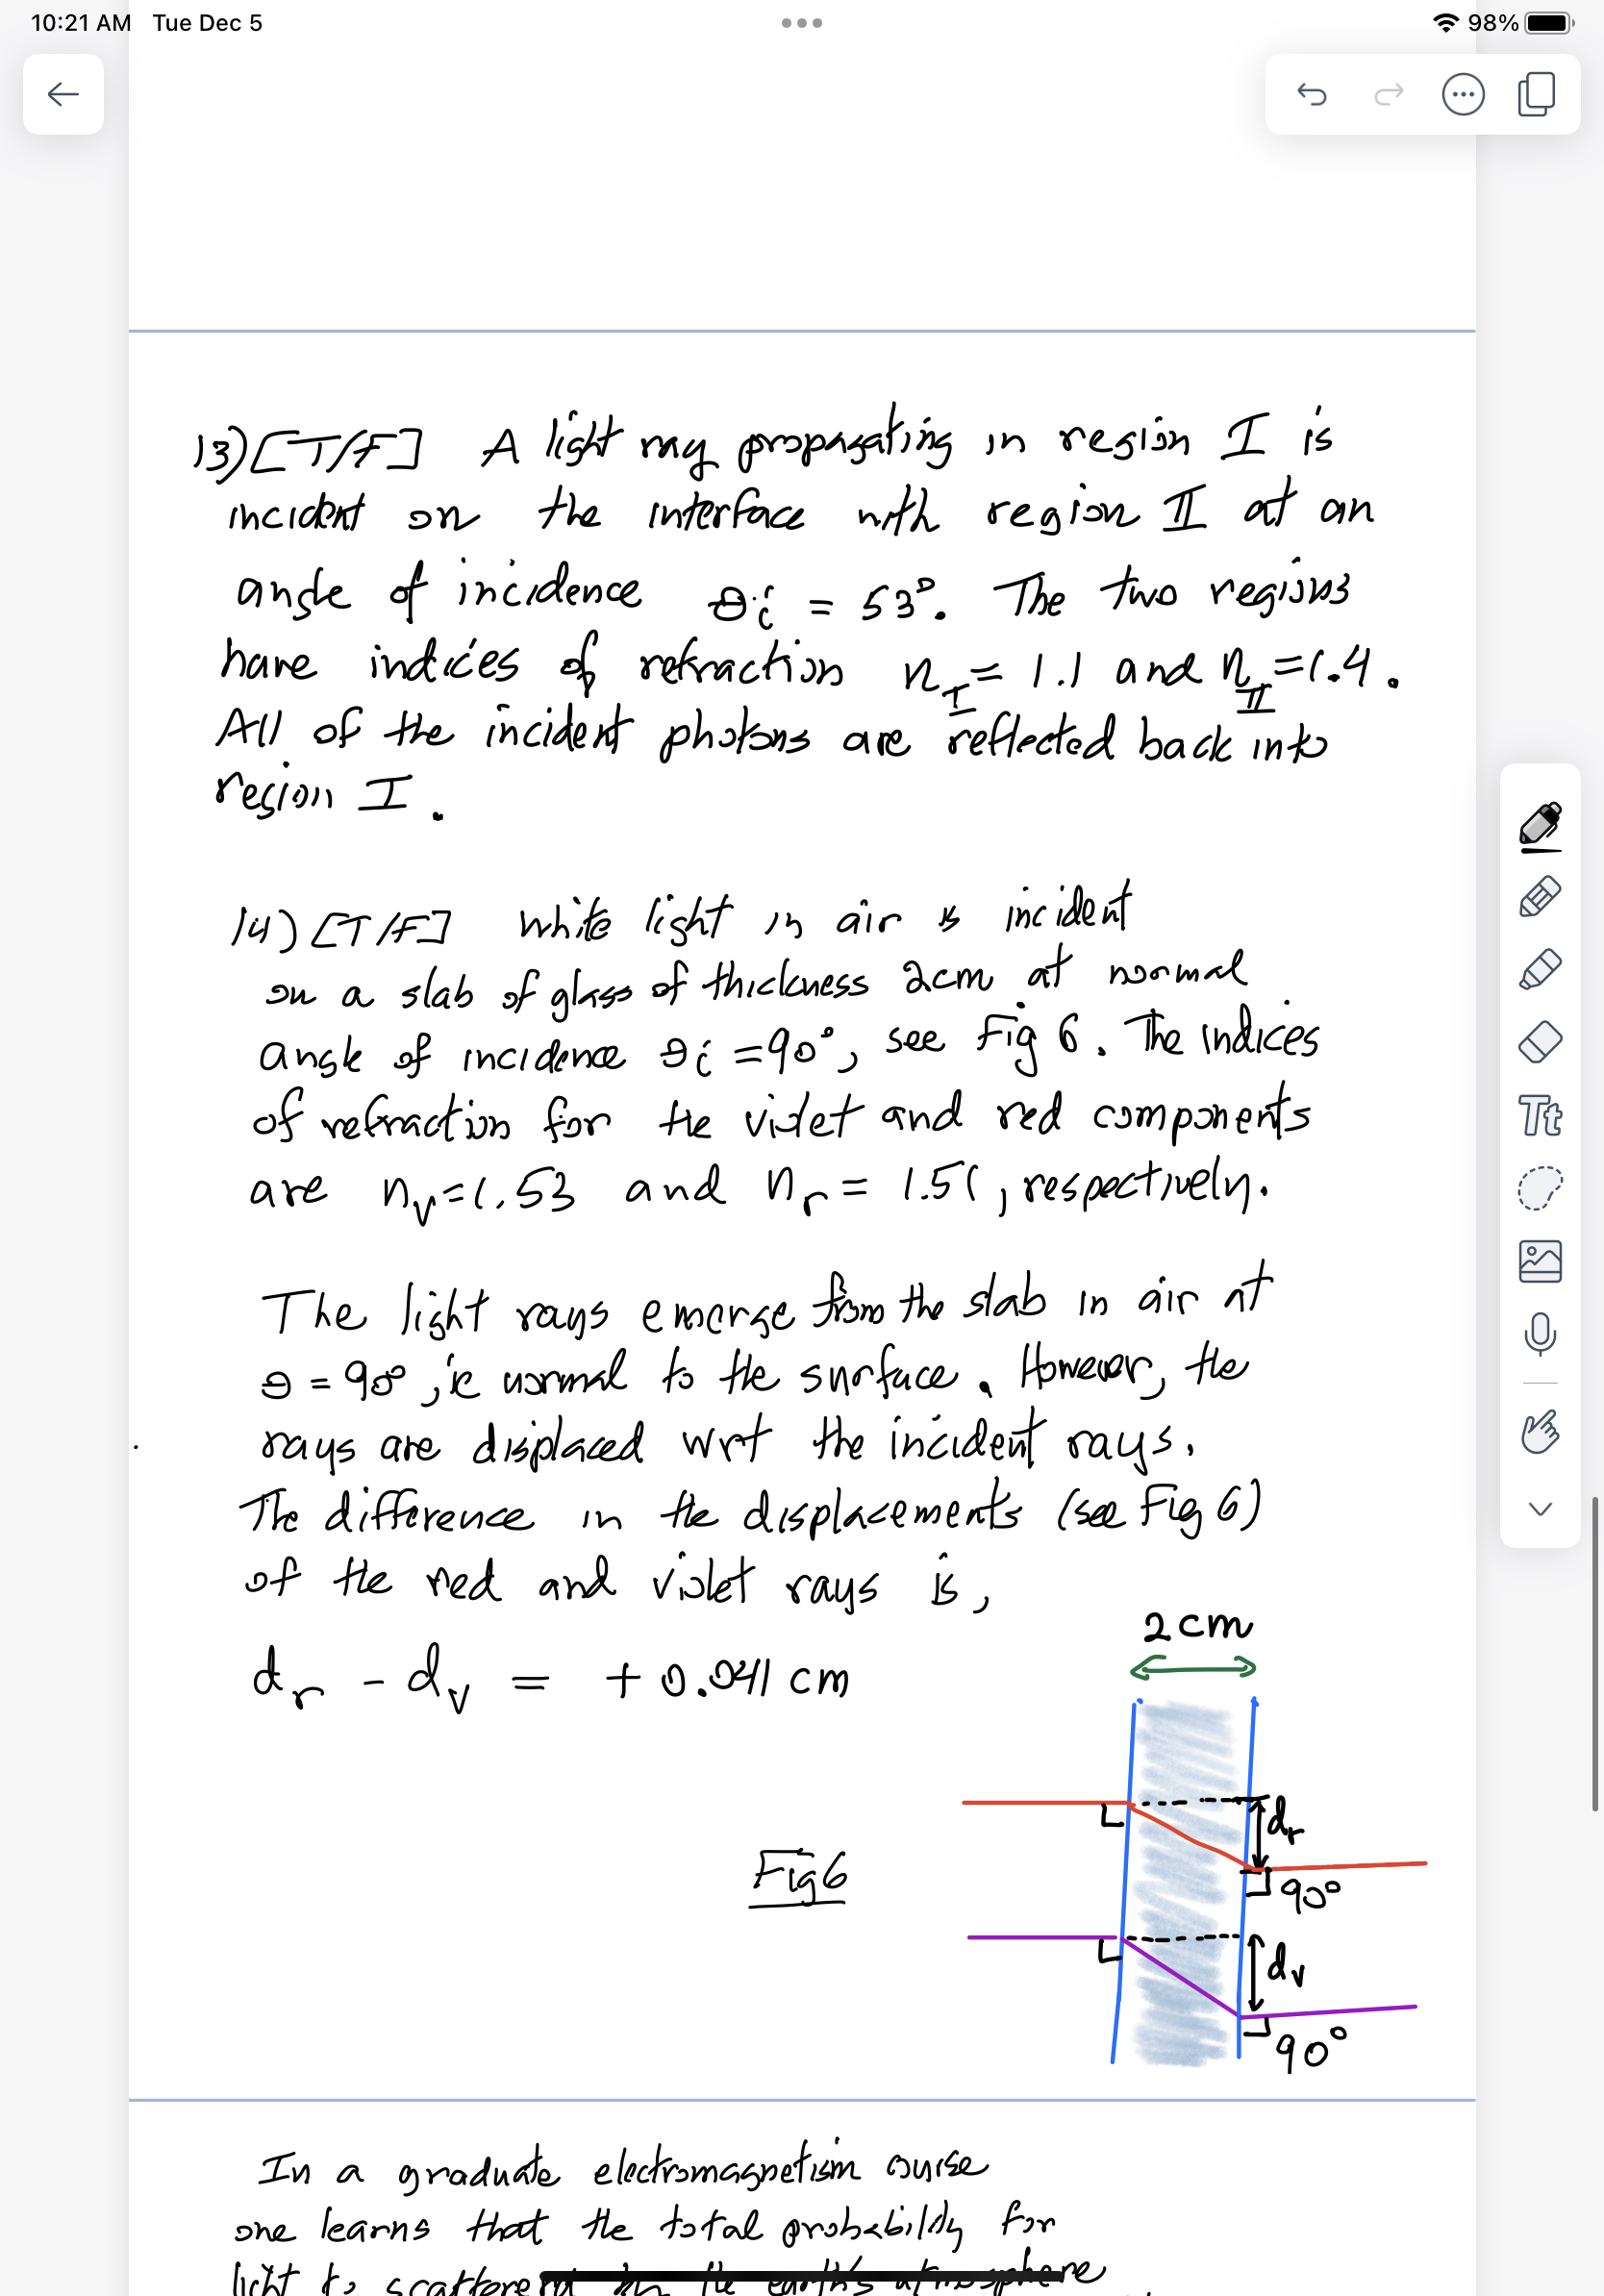 10:21 AM Tue Dec 5
98%
13) [T/F] A light ray propagating in region I is
incident on the interface with region II at an
angle of incidence θi = 53°. The two regions
have indices of refraction n_I = 1.1 and n_II = 1.4.
All of the incident photons are reflected back into
region I.
14) [T/F] White light in air is incident
on a slab of glass of thickness 2cm at normal
angle of incidence θi = 90°, see Fig 6. The indices
of refraction for the violet and red components
are n_v = 1.53 and n_r = 1.51, respectively.
The light rays emerge from the slab in air at
θ = 90°, ie normal to the surface. However, the
rays are displaced wrt the incident rays.
The difference in the displacements (see Fig 6)
of the red and violet rays is,
d_r - d_v = + 0.041 cm
2 cm
d_r
90°
Fig 6
d_v
90°
In a graduate electromagnetism course
one learns that the total probability for
light to scatter in the earth's atmosphere
Tt